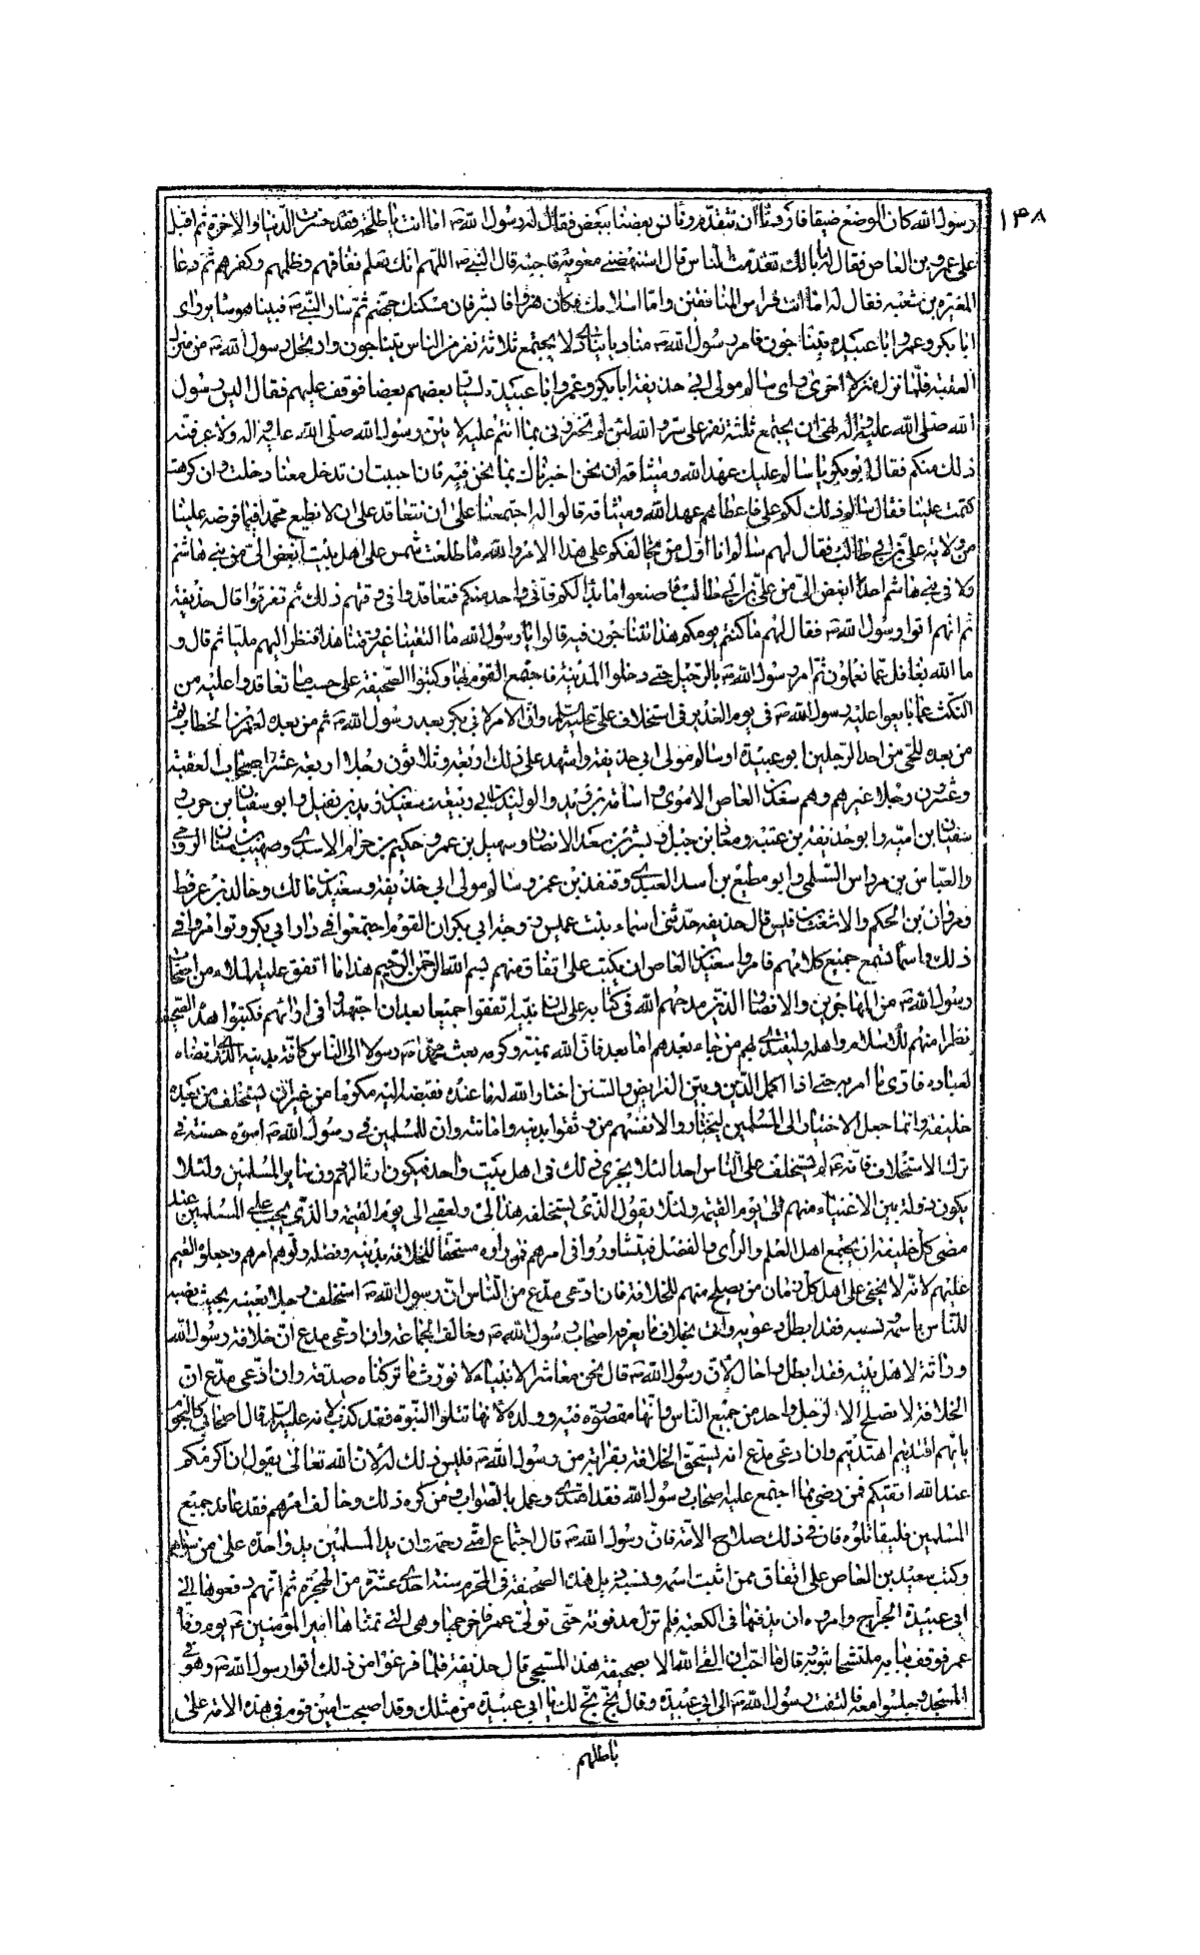 ١٣٨
رسول الله كان الوضع ضيقا فاردنا ان نتقدم وقاتن بعضنا ببعض فقال له رسول الله ص اما انت يا طلحة فقد خسرت الدنيا والاخرة ثم اقبل
على عمرو بن العاص فقال له ما بالك تقدمت الناس قال استنهضنى معوية فاجبته قال النبى ص اللهم انك تعلم نفاقهم وظلمهم وكفرهم ثم دعا
المغيرة بن شعبة فقال له اما انت فراس المنافقين واما اسلامك فكان هزوا فابشر فان مسكنك جهنم ثم سار النبى ص فبينا هو سائر راى
ابا بكر وعمر وابا عبيدة يتناجون فامر رسول الله ص مناديا ينادى لا يجتمع ثلاثة نفر من الناس يتناجون وارتحل رسول الله ص من منزل
العقبة فلما نزل منزلا اخرى راى سالم مولى ابى حذيفة ابا بكر وعمر وابا عبيدة يسار بعضهم بعضا فوقف عليهم فقال اليس رسول
الله صلى الله عليه واله نهى ان يجتمع ثلثة نفر على سر والله لئن لم تخبرونى بما انتم عليه لاتين رسول الله صلى الله عليه واله ولاعرفنه
ذلك منكم فقال ابو بكر يا سالم عليك عهد الله وميثاقه ان نحن اخبرناك بما نحن فيه فان احببت ان تدخل معنا دخلت وان كرهته
كتمت علينا فقال سالم ذلك لكم على فاعطاهم عهد الله وميثاقه قالوا له اجتمعنا على ان نتعاقد على ان لا نطيع محمدا فيما فرضه علينا
من ولاية على بن ابى طالب فقال لهم سالم وانا اول من يحالفكم على هذا الامر والله ما طلعت شمس على اهل بيت ابغض الى من بنى هاشم
ولا فى بنى هاشم احدا ابغض الى من على بن ابى طالب فاصنعوا ما بدا لكم فانى واحد منكم فتعاقدوا فى وقتهم ذلك ثم تفرقوا قال حذيفة
ثم انهم اتوا رسول الله ص فقال لهم ما كنتم يومكم هذا تتناجون فيه قالوا يا رسول الله ما التقينا غير وقتنا هذا فنظر اليهم مليا ثم قال و
ما الله بغافل عما تعملون ثم امر رسول الله ص بالرحيل حتى دخلوا المدينة فاجتمع القوم بها وكتبوا الصحيفة على حسب ما تعاقدوا عليه من
النكث عما بايعوا عليه رسول الله ص فى يوم الغدير فى استخلاف على عليه السلام وان الامر لابى بكر بعد رسول الله ص ثم من بعده لعمر بن الخطاب ثم
من بعده للحى من احد الرجلين ابو عبيدة او سالم مولى ابى حذيفة واشهد على ذلك اربعة وثلاثون رجلا اربعة عشر اصحاب العقبة
وعشرون رجلا غيرهم وهم سعيد بن العاص الاموى واسامة بن زيد والوليد بن ابى ربيعة سعيد بن زيد بن نفيل وابو سفيان بن حرب و
سفيان ابن امية وابو حذيفة بن عتبة ومعاذ بن جبل وبشير بن سعد الانصارى وسهيل بن عمرو حكيم بن حزام الاسدى وصهيب بن سنان الرومى
والعباس بن مرداس السلمى وابو مطيع بن اسد العبدى وقنفذ بن عمر وسالم مولى ابى حذيفة وسعيد بن مالك وخالد بن عرفطة
ومروان بن الحكم والاشعث بن قيس قال حذيفه حدثتنى اسماء بنت عميس زوجة ابى بكر ان القوم اجتمعوا فى دار ابى بكر وتوامروا فى
ذلك واسماء تسمع جميع كلامهم فامروا سعيد بن العاص ان يكتب على اتفاق منهم بسم الله الرحمن الرحيم هذا ما اتفق عليه الملاء من اصحاب
رسول الله ص من المهاجرين والانصار الذين مدحهم الله فى كتابه على لسان نبيه اتفقوا جميعا بعد ان اجتهدوا فى ارائهم فكتبوا هذه الصحيفة
نظرا منهم للاسلام واهله وليقتدى بهم من جاء بعدهم اما بعد فان الله بمنه وكرمه بعث محمدا ص رسولا الى الناس كافة بدينه الذى ارتضاه
لعباده فادى ما امر به حتى اذا اكمل الدين وبين الفرايض والسنن اختار الله له ما عنده فقبضه اليه مكرما من غير ان يستخلف من بعده
خليفة وانما جعل الاختيار الى المسلمين ليختاروا لانفسهم من وثقوا بدينه وامانته وان للمسلمين فى رسول الله ص اسوة حسنة فى
ترك الاستخلاف فانه ص لم يستخلف على الناس احدا لئلا يجرى ذلك فى اهل بيت واحد فيكون ارثا لهم دون ساير المسلمين ولئلا
يكون دولة بين الاغنياء منهم الى يوم القيمة ولئلا يقول الذى يستخلفه هذا لى ولعقبى الى يوم القيمة والذى يجب على المسلمين عند
مضى كل خليفة ان يجتمع اهل العلم والراى والفضل فيتشاوروا فى امرهم فمن راوه مستحقا للخلافة بدينه وفضله ولوهم امرهم وجعلوه القيم
عليهم لانه لا يخفى على اهل كل زمان من يصلح منهم للخلافة فان ادعى مدع من الناس ان رسول الله ص استخلف رجلا بعينه بحيث نصبه
للناس باسمه ونسبه فقد ابطل دعويه واتى بخلاف ما يعرفه اصحاب رسول الله ص وخالف الجماعة وان ادعى مدع ان خلافة رسول الله
وراثة لاهل بيته فقد ابطل واحال لان رسول الله ص قال نحن معاشر الانبياء لا نورث ما تركناه صدقة وان ادعى مدع ان
الخلافة لا تصلح الا لرجل واحد من جميع الناس وانها مقصورة فيه وولده لانها تتلوا النبوة فقد كذب لانه عليه السلام قال اصحابى كالنجوم
بايهم اقتديتم اهتديتم وان ادعى مدع انه يستحق الخلافة بقرابته من رسول الله ص فليس ذلك له لان الله تعالى يقول ان اكرمكم
عند الله اتقيكم فمن رضى بما اجتمع عليه اصحاب رسول الله فقد اهتدى وعمل بالصواب ومن كره ذلك وخالف امرهم فقد عاند جميع
المسلمين فليقاتلوه فان فى ذلك صلاح الامة فان رسول الله ص قال اجتماع امتى رحمة وان يد المسلمين يد واحدة على من سواهم
وكتب سعيد بن العاص على اتفاق ممن اثبت اسمه ونسبه بذيل هذه الصحيفة فى المحرم سنة احدى عشرة من الهجرة ثم انهم دفعوها الى
ابى عبيدة الجراح وامروه ان يدفنها فى الكعبة فلم تزل مدفونة حتى تولى عمر فاخرجها وهى التى تمناها امير المؤمنين ع يوم وفاة
عمر فوقف بابه ملتشحا بثوبه قال ما احب ان القى الله الا بصحيفة هذا المسجى قال حذيفة فلما فرغوا من ذلك اتوا رسول الله ص وهو فى
المسجد وجلسوا معه فالتفت رسول الله ص الى ابى عبيدة وقال بخ بخ لك يا ابى عبيدة من مثلك وقد اصبحت امين قوم فى هذه الامة على
باطلهم